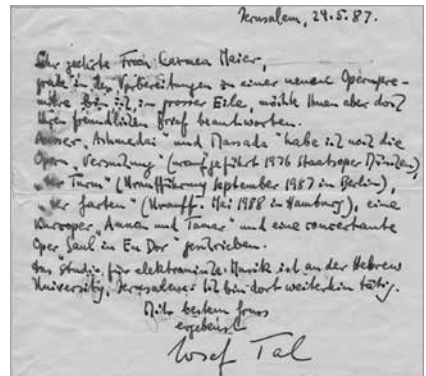 Jerusalem, 24.5.87.
Sehr geehrte Frau Carmen Maier,
grade in den Vorbereitungen zu einer neuen Opernpre-
mière bin ich in grosser Eile, möchte Ihnen aber doch
Ihren freundlichen Brief beantworten.
Ausser "Ashmedai" und "Massada" habe ich noch die
Opern "Versuchung" (uraufgeführt 1976 Staatsoper München),
"Der Turm" (Uraufführung September 1987 in Berlin),
"Der Garten" (Urauff. Mai 1988 in Hamburg), eine
Kurzoper "Amnon und Tamar" und eine concertante
Oper "Saul in En Dor" geschrieben.
Das Studio für elektronische Musik ist an der Hebrew
University, Jerusalem. Ich bin dort weiterhin tätig.
Mit bestem Gruss
ergebenst
Josef Tal